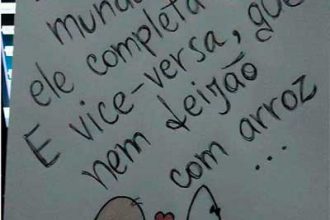 mund
ele completa
E vice-versa, que
nem feijão
com arroz
...